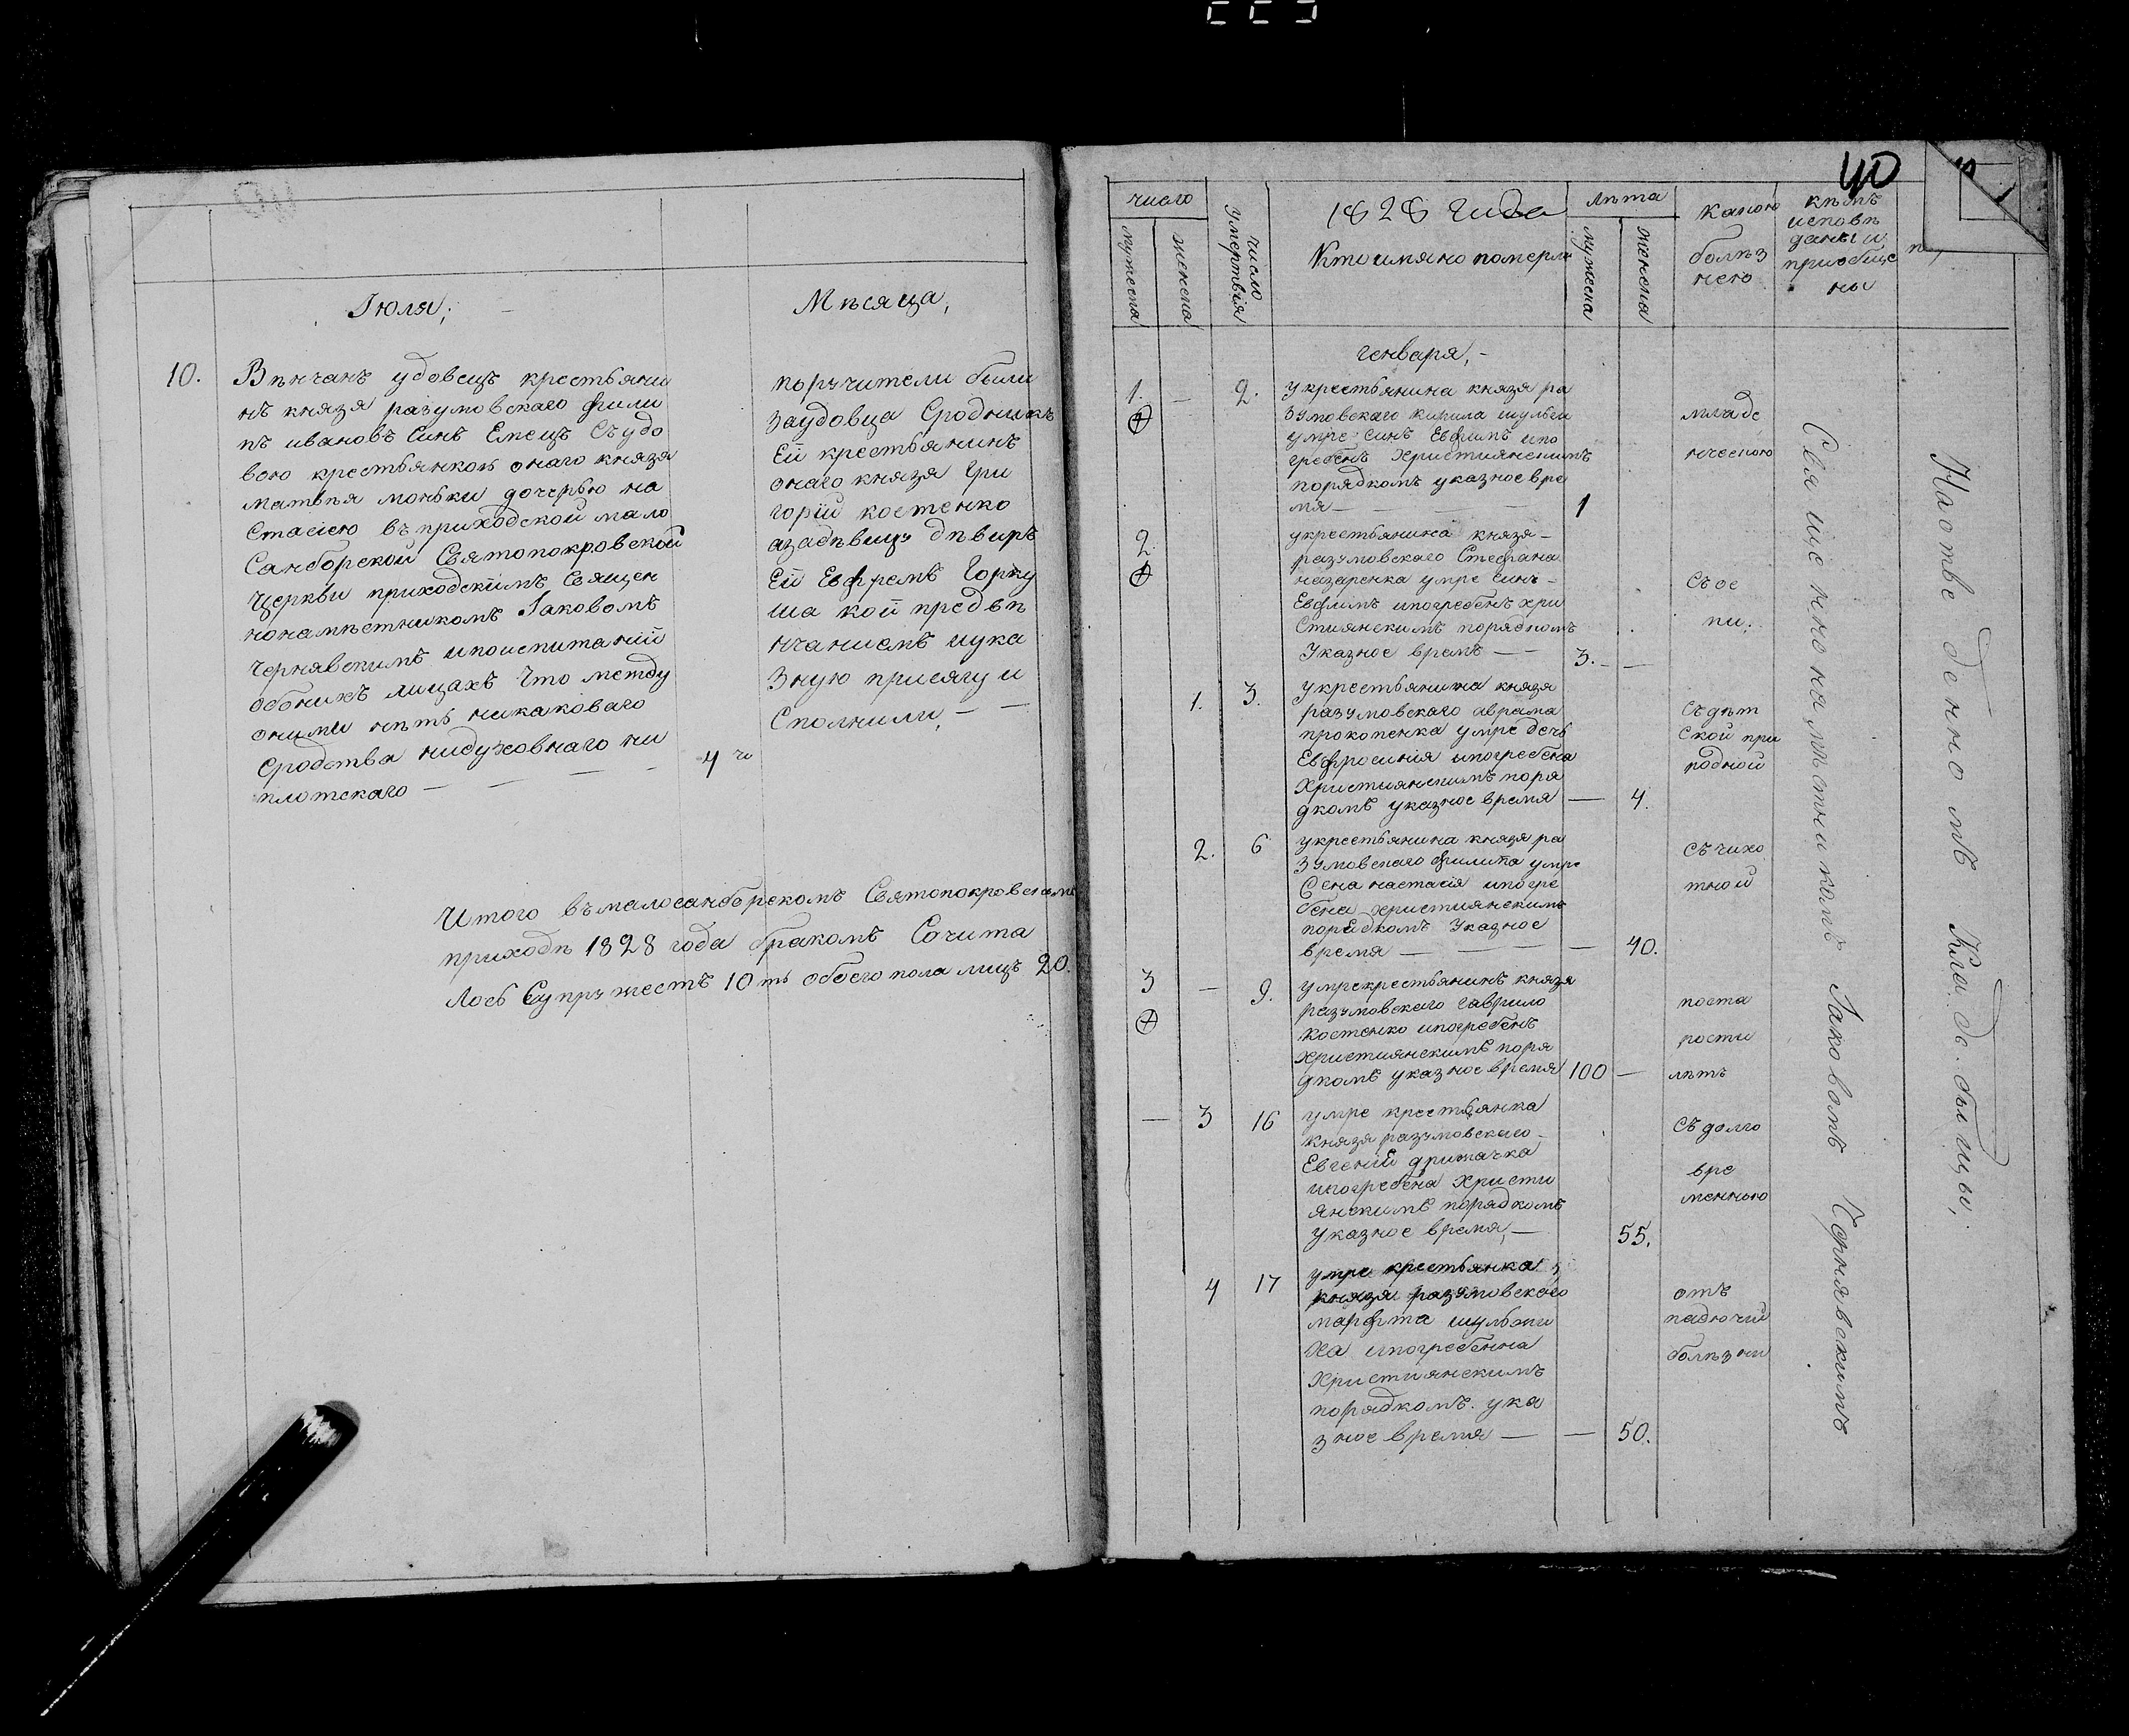 Іюля;
Мѣсяца,
10.
Вѣнчанъ удовецъ крестьяни
нъ князя разумовскаго фили
пъ ивановъ Синъ Емецъ Съудо
вою крестьянкою онаго князя
матвѣя моньки дочерью на
Стасіею въ приходской мало
Санборской Святопокровской
церкви приходскимъ Священ
нонамѣстникомъ Іаковомъ
Чернявскимъ ипоиспитаній
обоихъ лицахъ Что между
оними нѣтъ никаковаго
Сродства нидуховнаго ни
плотскаго — — —
4 го
поручители были
заудовца Сродникъ
Ей крестьянинъ
онаго князя Гри
горій костенко
азадѣвицу дѣвиръ
Ей Евфремъ Горку
ша кой предвѣ
нчаніемъ иука
зную присягу и
Сполнили, — —
Итого въмалосанборскомъ Святопокровскомъ
приходѣ 1828 года бракомъ Сочита
лось Супружествъ 10ть обоего пола лицъ 20.
40
число
мужеска
женска
число умертвія
1828 Года
Кто имяно померли
лѣта
мужеска
женска
какою
болѣз
нею
кѣмъ
исповѣ
даны и
приобще
ны
генваря, -
1. — 2.
укрестьянина князя ра
зумовскаго кирила шульги
умре Синъ Евфимъ ипо
гребенъ християнскимъ
порядкомъ указное вре
мя — — — — 1
младе
нческою
2.
укрестьянина князя —
разумовскаго Стефана
назаренка умре Синъ —
Евфимъ ипогребенъ хри
Стиянскимъ порядкомъ
Указное времъ — — 3. — —
Съос
пи.
1. 3.
укрестьянина князя
разумовскаго аврама
прокопенка умре дечь
Евфросинія ипогребена
християнскимъ поря
дкомъ указное время — 4.
Съдѣт
Ской при
родной
2. 6
укрестьянина князя ра
зумовскаго филипа умре
Сена настасія ипогре
бена християнскимъ
порядкомъ Указное
время — — — — 40.
Съчихо
тной
3 — 9.
умрекрестьянинъ князя
разумовскаго гаврило
костенко ипогребенъ
християнскимъ поря
дкомъ указное время 100 —
поста
рости
лѣтъ
— 3 16
умре крестьянка
князя разумовскаго —
Евгеній
ипогребена Христи
янскимъ порядкомъ
указное время, — 55.
Съдолго
вре
менною
4 17
умре крестьянка
князя разумовского
марфта шульжи
ха ипогребенна
Християнскимъ
порядкомъ ука
зное время — — 50.
отъ
падючий
болѣзни
Священнонамѣстникомъ Іаковомъ Чернявскимъ